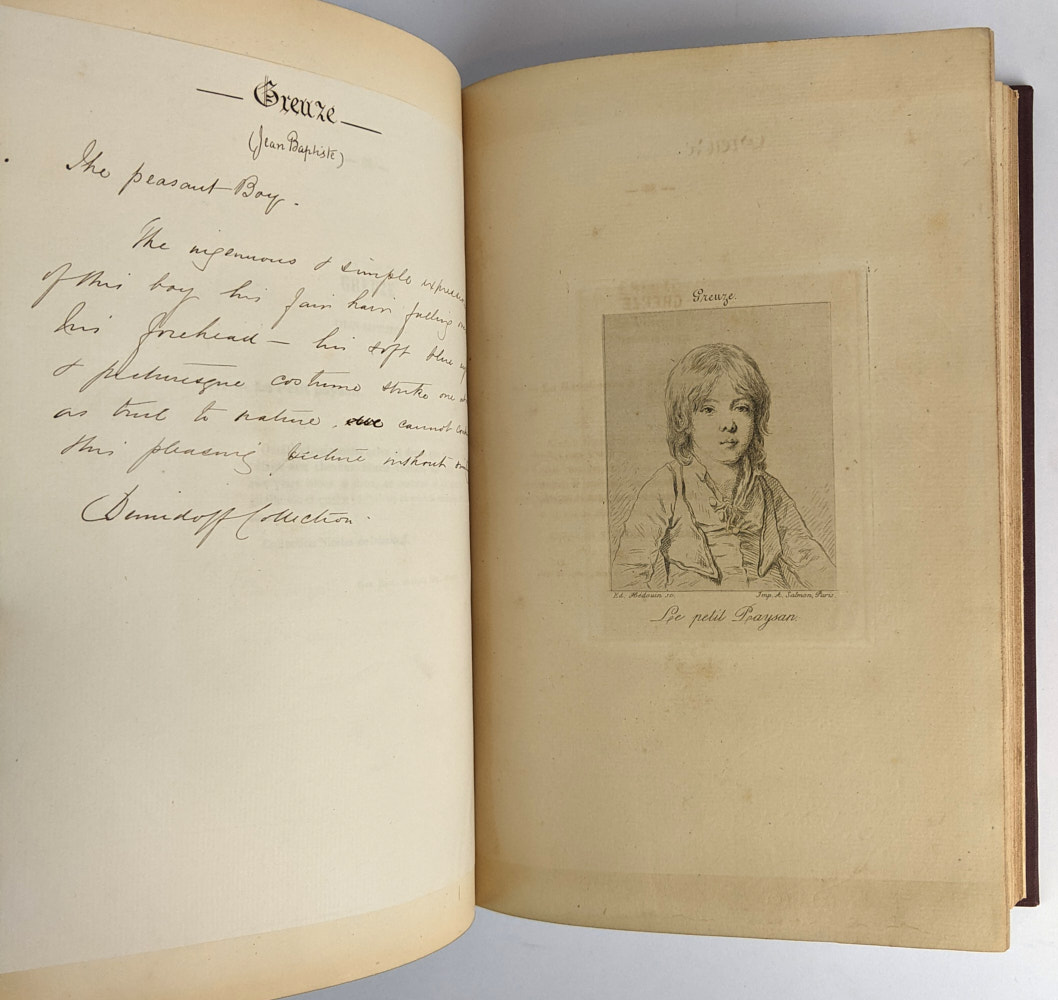 — Greuze —
(Jean Baptiste)
The peasant Boy.
The ingenuous & simple
of this boy his fair hair falling
his forehead – his soft blue
& picturesque costume strike one
as true to nature. we cannot
this pleasing picture without
Demidoff Collection.
Greuze.
Ed. Hédouin sc. Imp. A. Salmon, Paris
Le petit Paysan.